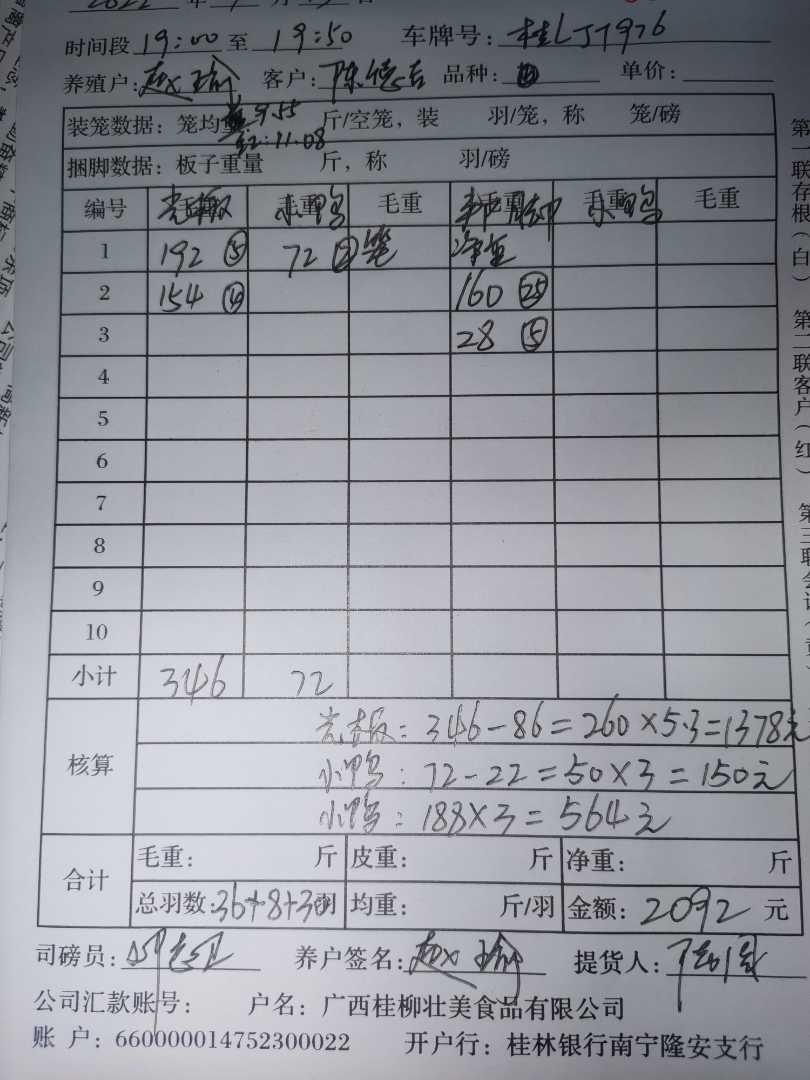 时间段 19:00 至 19:50 车牌号: 桂LJ7976
养殖户: 赵瑜 客户: 陈德 品种: 单价:
装笼数据: 笼均重 9.55 斤/空笼, 装 羽/笼, 称 笼/磅
红:11.08
捆脚数据: 板子重量 斤, 称 羽/磅
编号 小鸭 毛重 小鸭 毛重
1 192 ⑤ 72 ② 笼 净重
2 154 ④ 160 ㉕
3 28 ⑤
4
5
6
7
8
9
10
小计 346 72
核算
346-86=260×5.3=1378元
小鸭: 72-22=50×3=150元
小鸭: 188×3=564元
合计 毛重: 斤 皮重: 斤 净重: 斤
总羽数:36+8+30羽 均重: 斤/羽 金额: 2092 元
司磅员: 养户签名: 赵瑜 提货人:
公司汇款账号: 户名: 广西桂柳壮美食品有限公司
账 户: 660000014752300022 开户行: 桂林银行南宁隆安支行
第一联存根(白) 第二联客户(红)